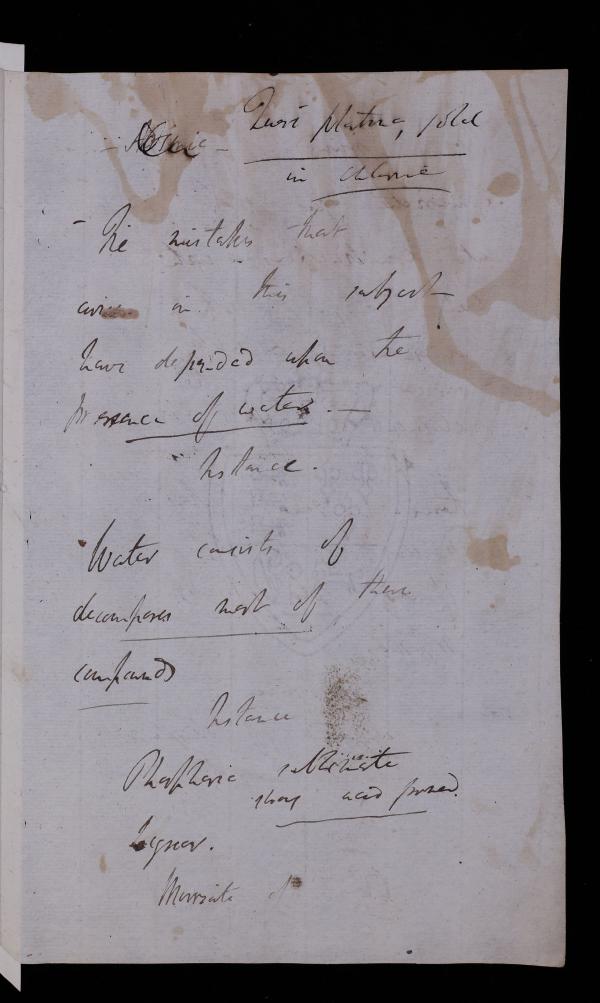 platina, gold
in chlorine
The mistakes that
in this subject
have depended upon the
presence of water. —
Instance.
Water consists of
decomposes most of these
compounds
Instance
Phosphoric sublimate
strong acid formed.
Liquor.
Muriate of